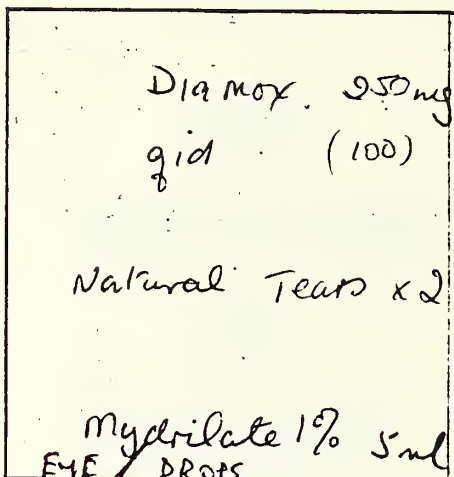 Diamox. 250mg
qid (100)
Natural Tears x 2
Mydrilate 1% 5ml
EYE DROPS